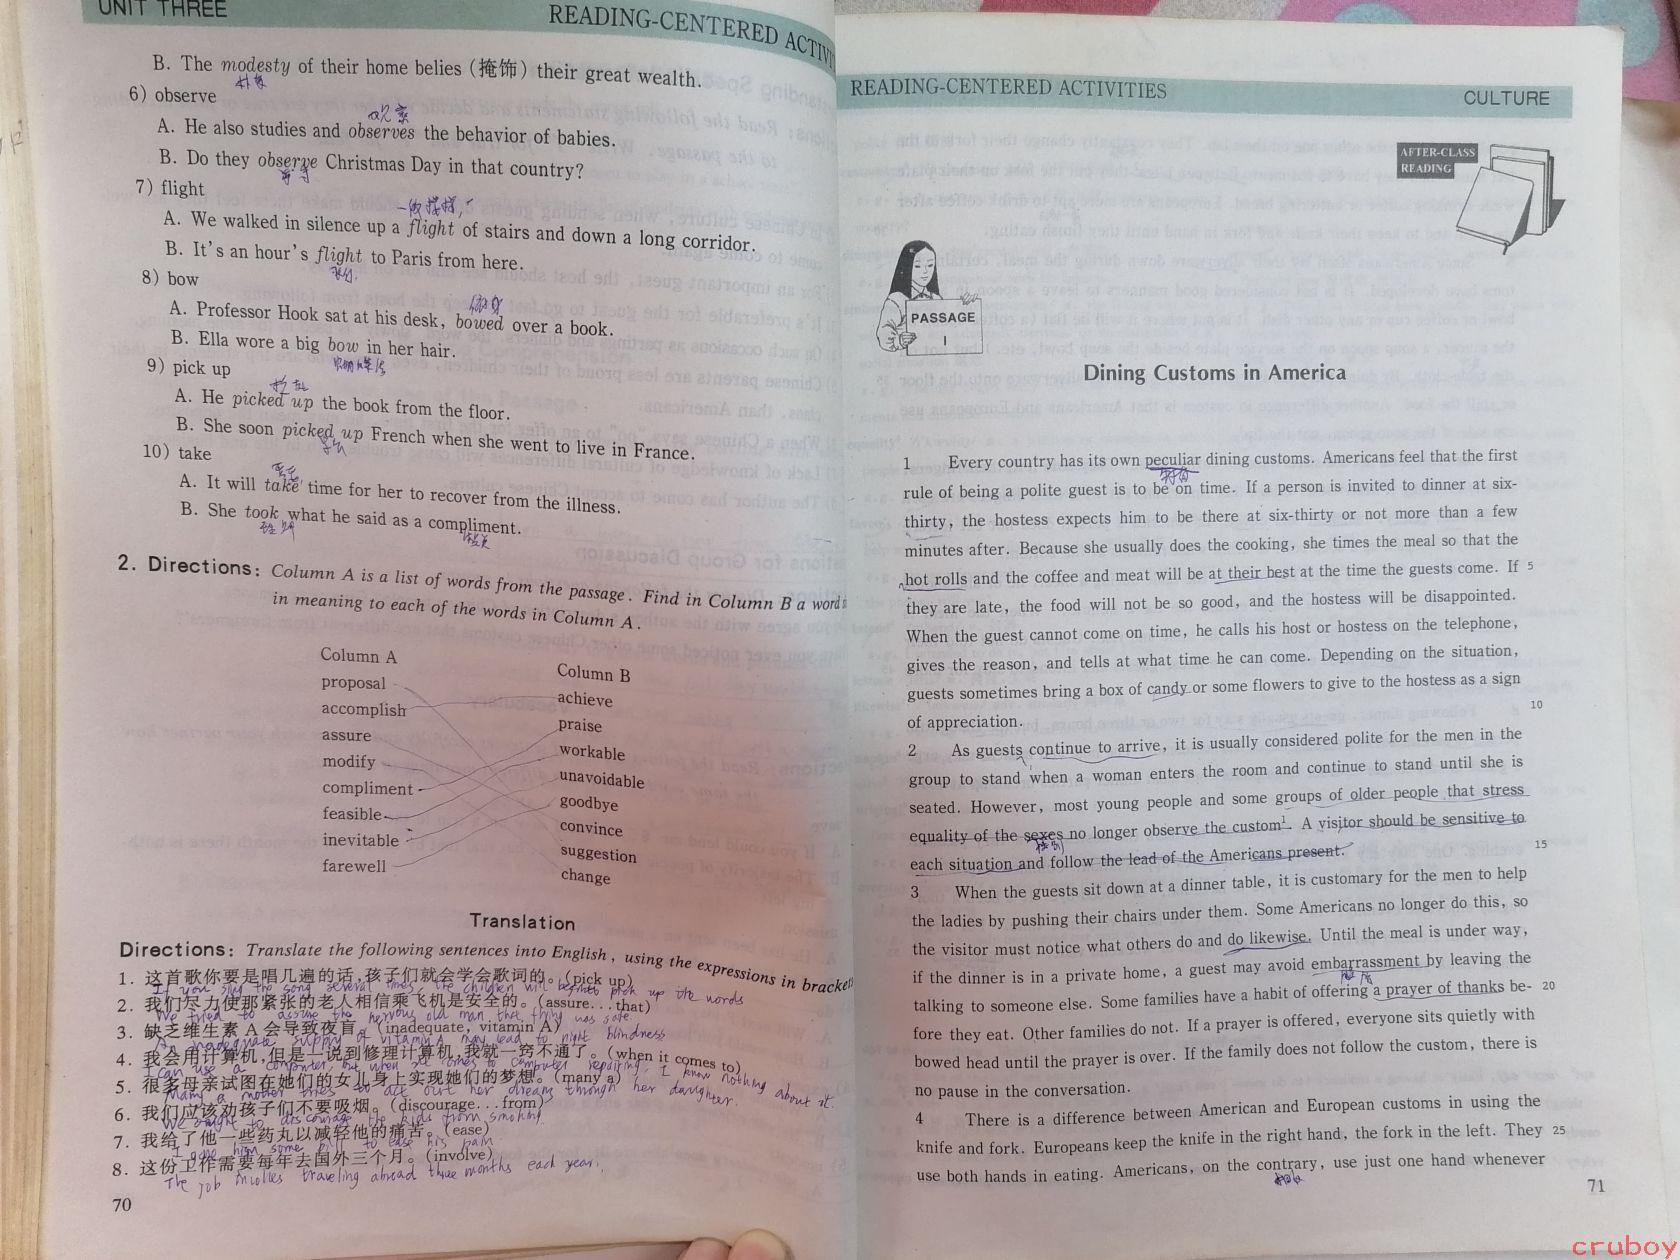 UNIT THREE
READING-CENTERED ACTIVI
B. The modesty of their home belies (掩饰) their great wealth.
6) observe
观察
A. He also studies and observes the behavior of babies.
B. Do they observe Christmas Day in that country?
7) flight
A. We walked in silence up a flight of stairs and down a long corridor.
B. It's an hour's flight to Paris from here.
8) bow
A. Professor Hook sat at his desk, bowed over a book.
B. Ella wore a big bow in her hair.
9) pick up
A. He picked up the book from the floor.
B. She soon picked up French when she went to live in France.
10) take
A. It will take time for her to recover from the illness.
B. She took what he said as a compliment.
2. Directions: Column A is a list of words from the passage. Find in Column B a word
in meaning to each of the words in Column A.
Column A
Column B
proposal
achieve
accomplish
praise
assure
workable
modify
unavoidable
compliment
goodbye
feasible
convince
inevitable
suggestion
farewell
change
Translation
Directions: Translate the following sentences into English, using the expressions in bracket
1. 这首歌你要是唱几遍的话,孩子们就会学会歌词的。(pick up)
If you sing the song several times, the children will pick up the words
2. 我们尽力使那紧张的老人相信乘飞机是安全的。(assure...that)
We tried to assure the nervous old man that flying was safe.
3. 缺乏维生素 A 会导致夜盲。(inadequate, vitamin A)
An inadequate supply of vitamin A may lead to night blindness
4. 我会用计算机,但是一说到修理计算机,我就一窍不通了。(when it comes to)
I can use a computer, but when it comes to computer repairing, I know nothing about it.
5. 很多母亲试图在她们的女儿身上实现她们的梦想。(many a)
Many a mother tries to act out her dreams through her daughter.
6. 我们应该劝孩子们不要吸烟。(discourage...from)
We ought to discourage the kids from smoking.
7. 我给了他一些药丸以减轻他的痛苦。(ease)
I gave him some pills to ease his pain.
8. 这份工作需要每年去国外三个月。(involve)
The job traveling abroad three months each year.
70
READING-CENTERED ACTIVITIES
CULTURE
AFTER-CLASS
READING
PASSAGE
I
Dining Customs in America
1 Every country has its own peculiar dining customs. Americans feel that the first
rule of being a polite guest is to be on time. If a person is invited to dinner at six-
thirty, the hostess expects him to be there at six-thirty or not more than a few
minutes after. Because she usually does the cooking, she times the meal so that the
hot rolls and the coffee and meat will be at their best at the time the guests come. If 5
they are late, the food will not be so good, and the hostess will be disappointed.
When the guest cannot come on time, he calls his host or hostess on the telephone,
gives the reason, and tells at what time he can come. Depending on the situation,
guests sometimes bring a box of candy or some flowers to give to the hostess as a sign
of appreciation. 10
2 As guests continue to arrive, it is usually considered polite for the men in the
group to stand when a woman enters the room and continue to stand until she is
seated. However, most young people and some groups of older people that stress
equality of the sexes no longer observe the custom1. A visitor should be sensitive to
each situation and follow the lead of the Americans present. 15
3 When the guests sit down at a dinner table, it is customary for the men to help
the ladies by pushing their chairs under them. Some Americans no longer do this, so
the visitor must notice what others do and do likewise. Until the meal is under way,
if the dinner is in a private home, a guest may avoid embarrassment by leaving the
talking to someone else. Some families have a habit of offering a prayer of thanks be- 20
fore they eat. Other families do not. If a prayer is offered, everyone sits quietly with
bowed head until the prayer is over. If the family does not follow the custom, there is
no pause in the conversation.
4 There is a difference between American and European customs in using the
knife and fork. Europeans keep the knife in the right hand, the fork in the left. They 25
use both hands in eating. Americans, on the contrary, use just one hand whenever
71
cruboy